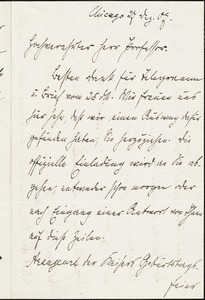 Chicago 27 Dez. 07.
Hochverehrter Herr Professor.
Besten Dank für Telegramm
u. Brief vom 25. Wir freuen uns
sehr, daß wir einen Ausweg
gefunden haben, Sie herzuziehen. Die
offizielle Einladung wird an Sie ab-
gehen, entweder schon morgen oder
nach Eingang einer Antwort von Ihnen
auf diese Zeilen.
der Kaisers Geburtstags
feier